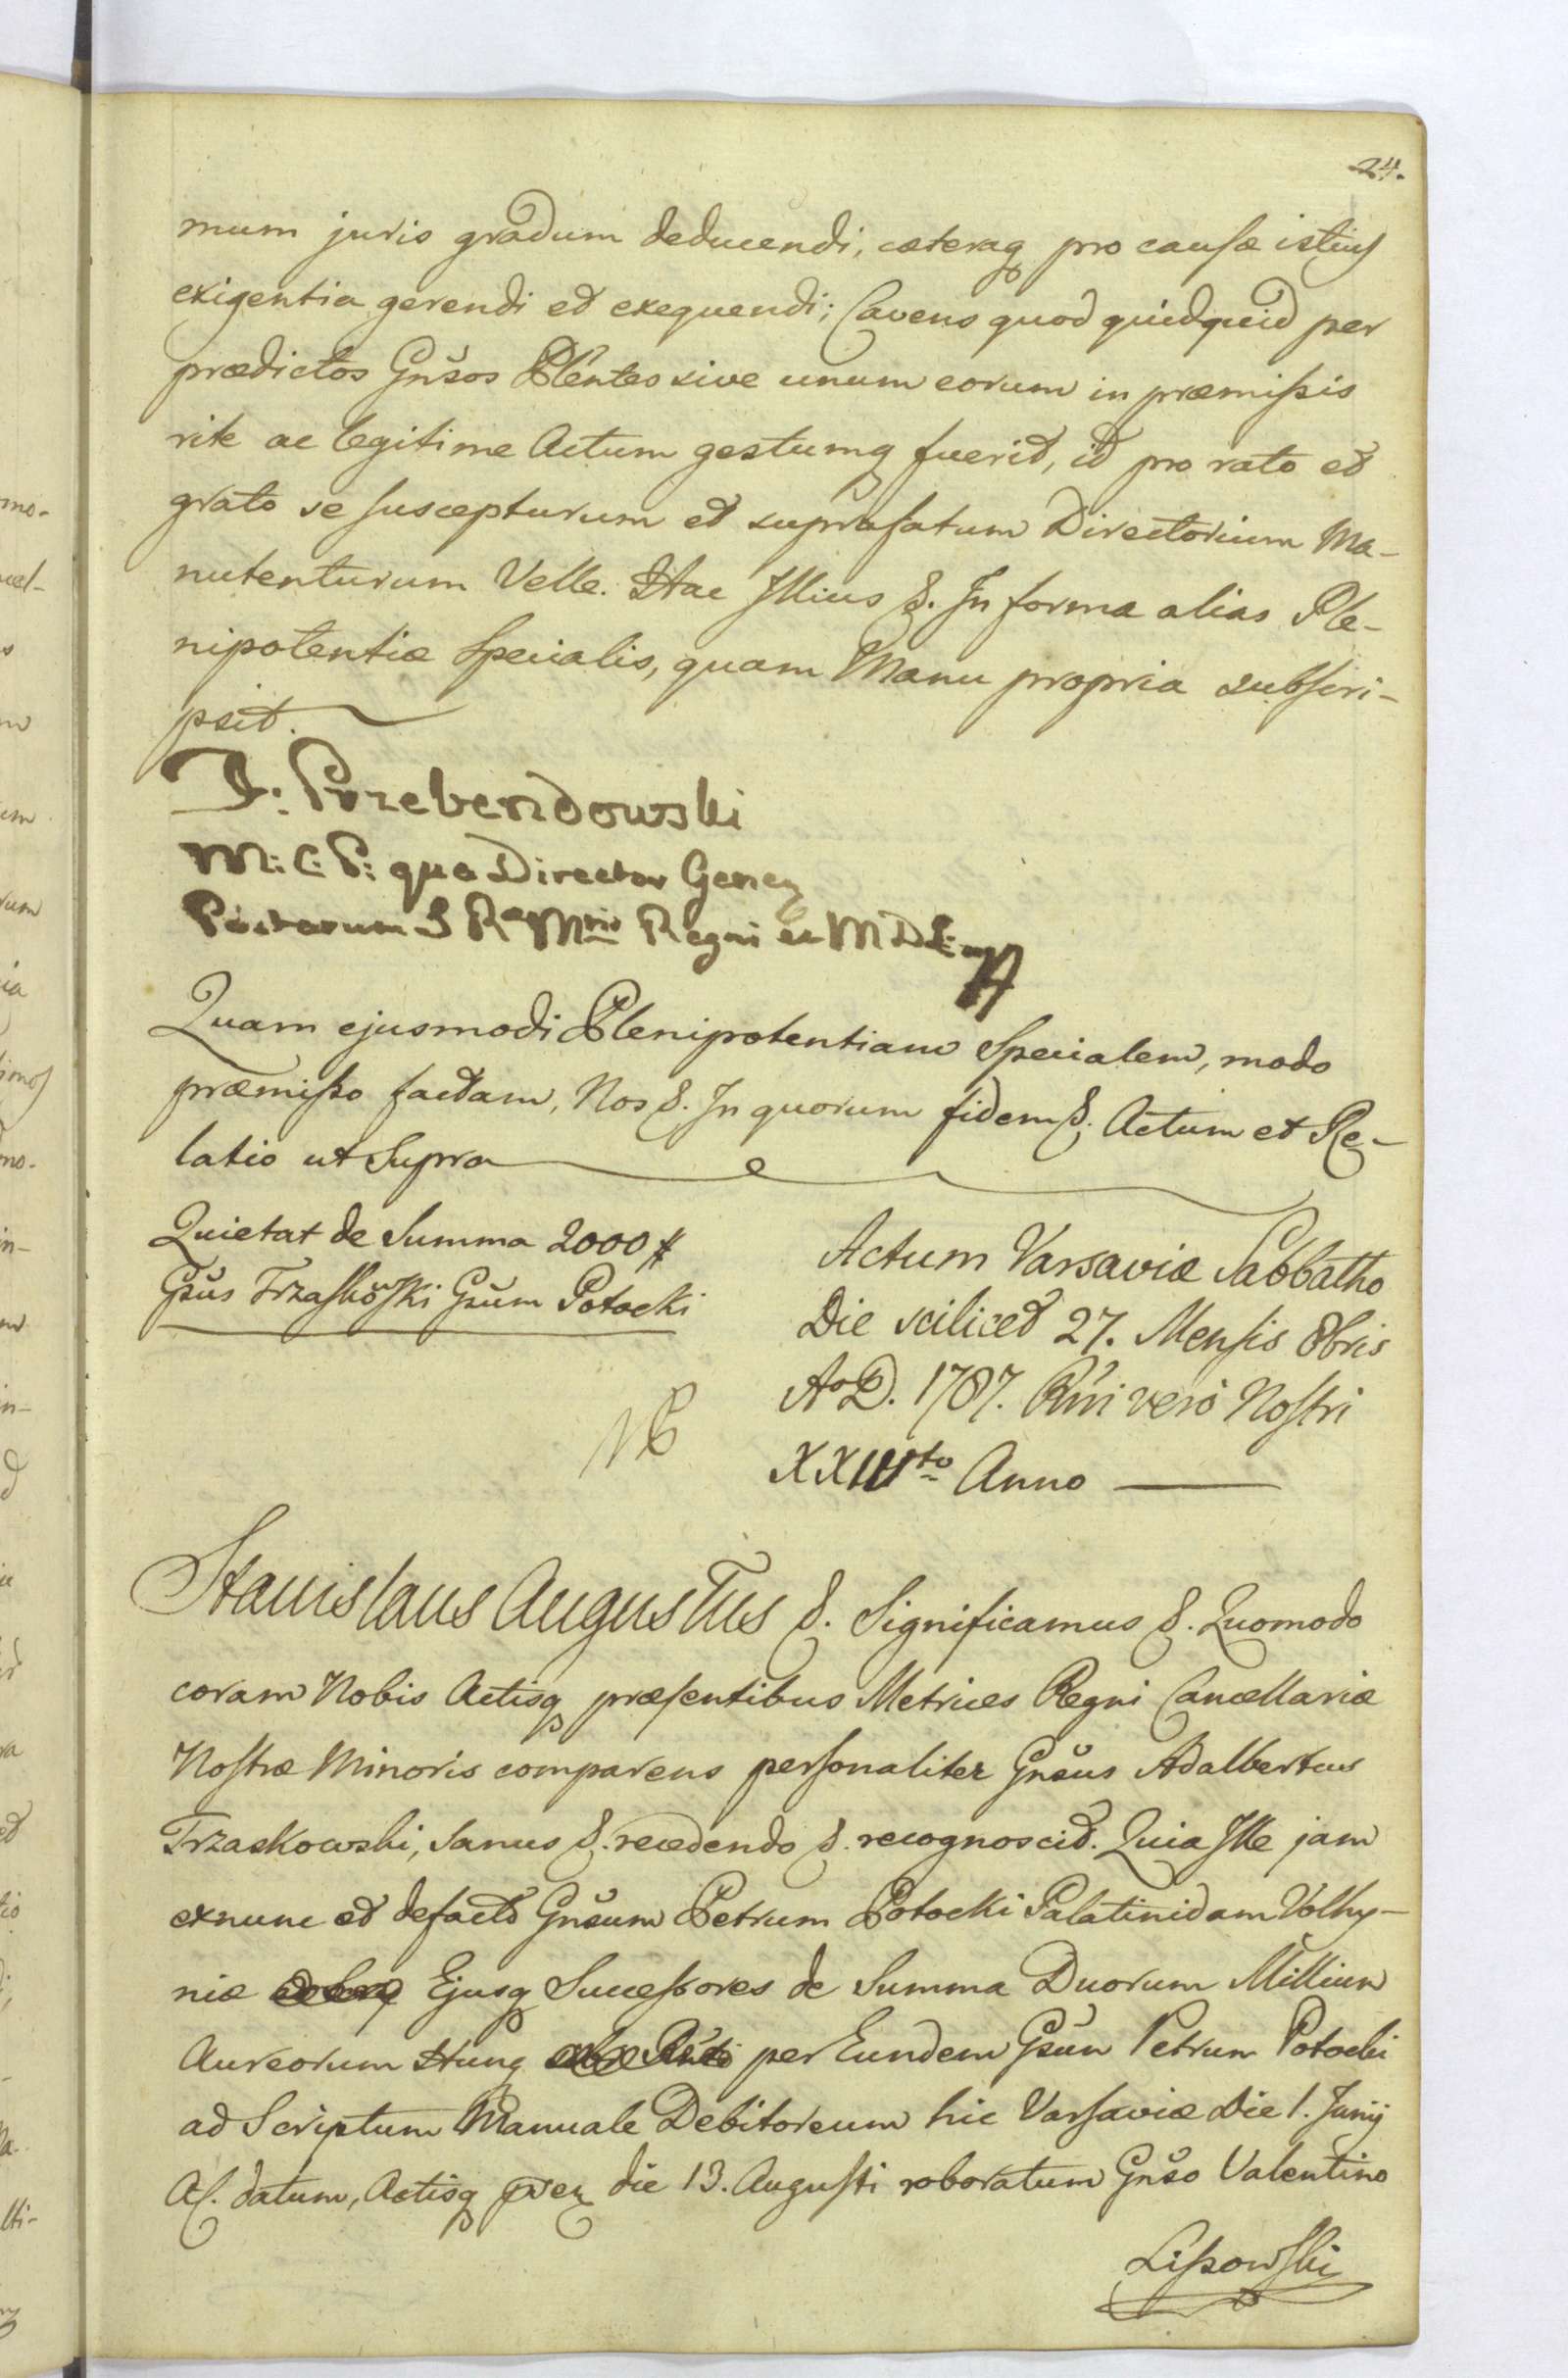 24.
mum juris gradum deducendi, cæteraq pro causæ istius
exigentia gerendi et exequendi; Cavens quod quidquid per
prædictos Gnŝos Plentes sive unum eorum in præmissis
rite ac legitime Actum gestumq fuerit, id pro rato et
grato se suscepturum et suprafatum Directorium Ma-
nutenturum Velle. Hac Illius &. In forma alias Ple-
nipotentiæ Specialis, quam Manu propria subscri-
psit.
J: Przebendowski
M: C: P: qua Director Gener
Postarum S Ræ Mtis Regni et M D L
Quam ejusmodi Plenipotentiam Specialem, modo
præmisso factam, Nos &. In quorum fidem &. Actum et Re-
latio ut Supra
Quietat de Summa 2000 #
Gsŭs Trzaskowski Gsŭm Potocki
Actum Varsaviæ Sabbatho
Die scilicet 27. Mensis 8bris
Ao D. 1787. Rŭi verò Nostri
XXIVto Anno
NB
Stanislaus Augustus &. Significamus &. Quomodo
coram Nobis Actisq præsentibus Metrices Regni Cancellariæ
Nostræ Minoris comparens personaliter Gnŝus Adalbertus
Trzaskowski, Sanus &. recedendo &. recognoscit. Quia Ille jam
exnunc et defacto Gnŝum Petrum Potocki Palatinidam Volhy-
niæ Ejusq Successores de Summa Duorum Millium
Aureorum Hung per Eundem Gsŭm Petrum Potocki
ad Scriptum Manuale Debitoreum hic Varsaviæ Die 1. Junij
A C. datum, Actisq præz die 13. Augusti roboratum Gnŝo Valentino
Lissowski